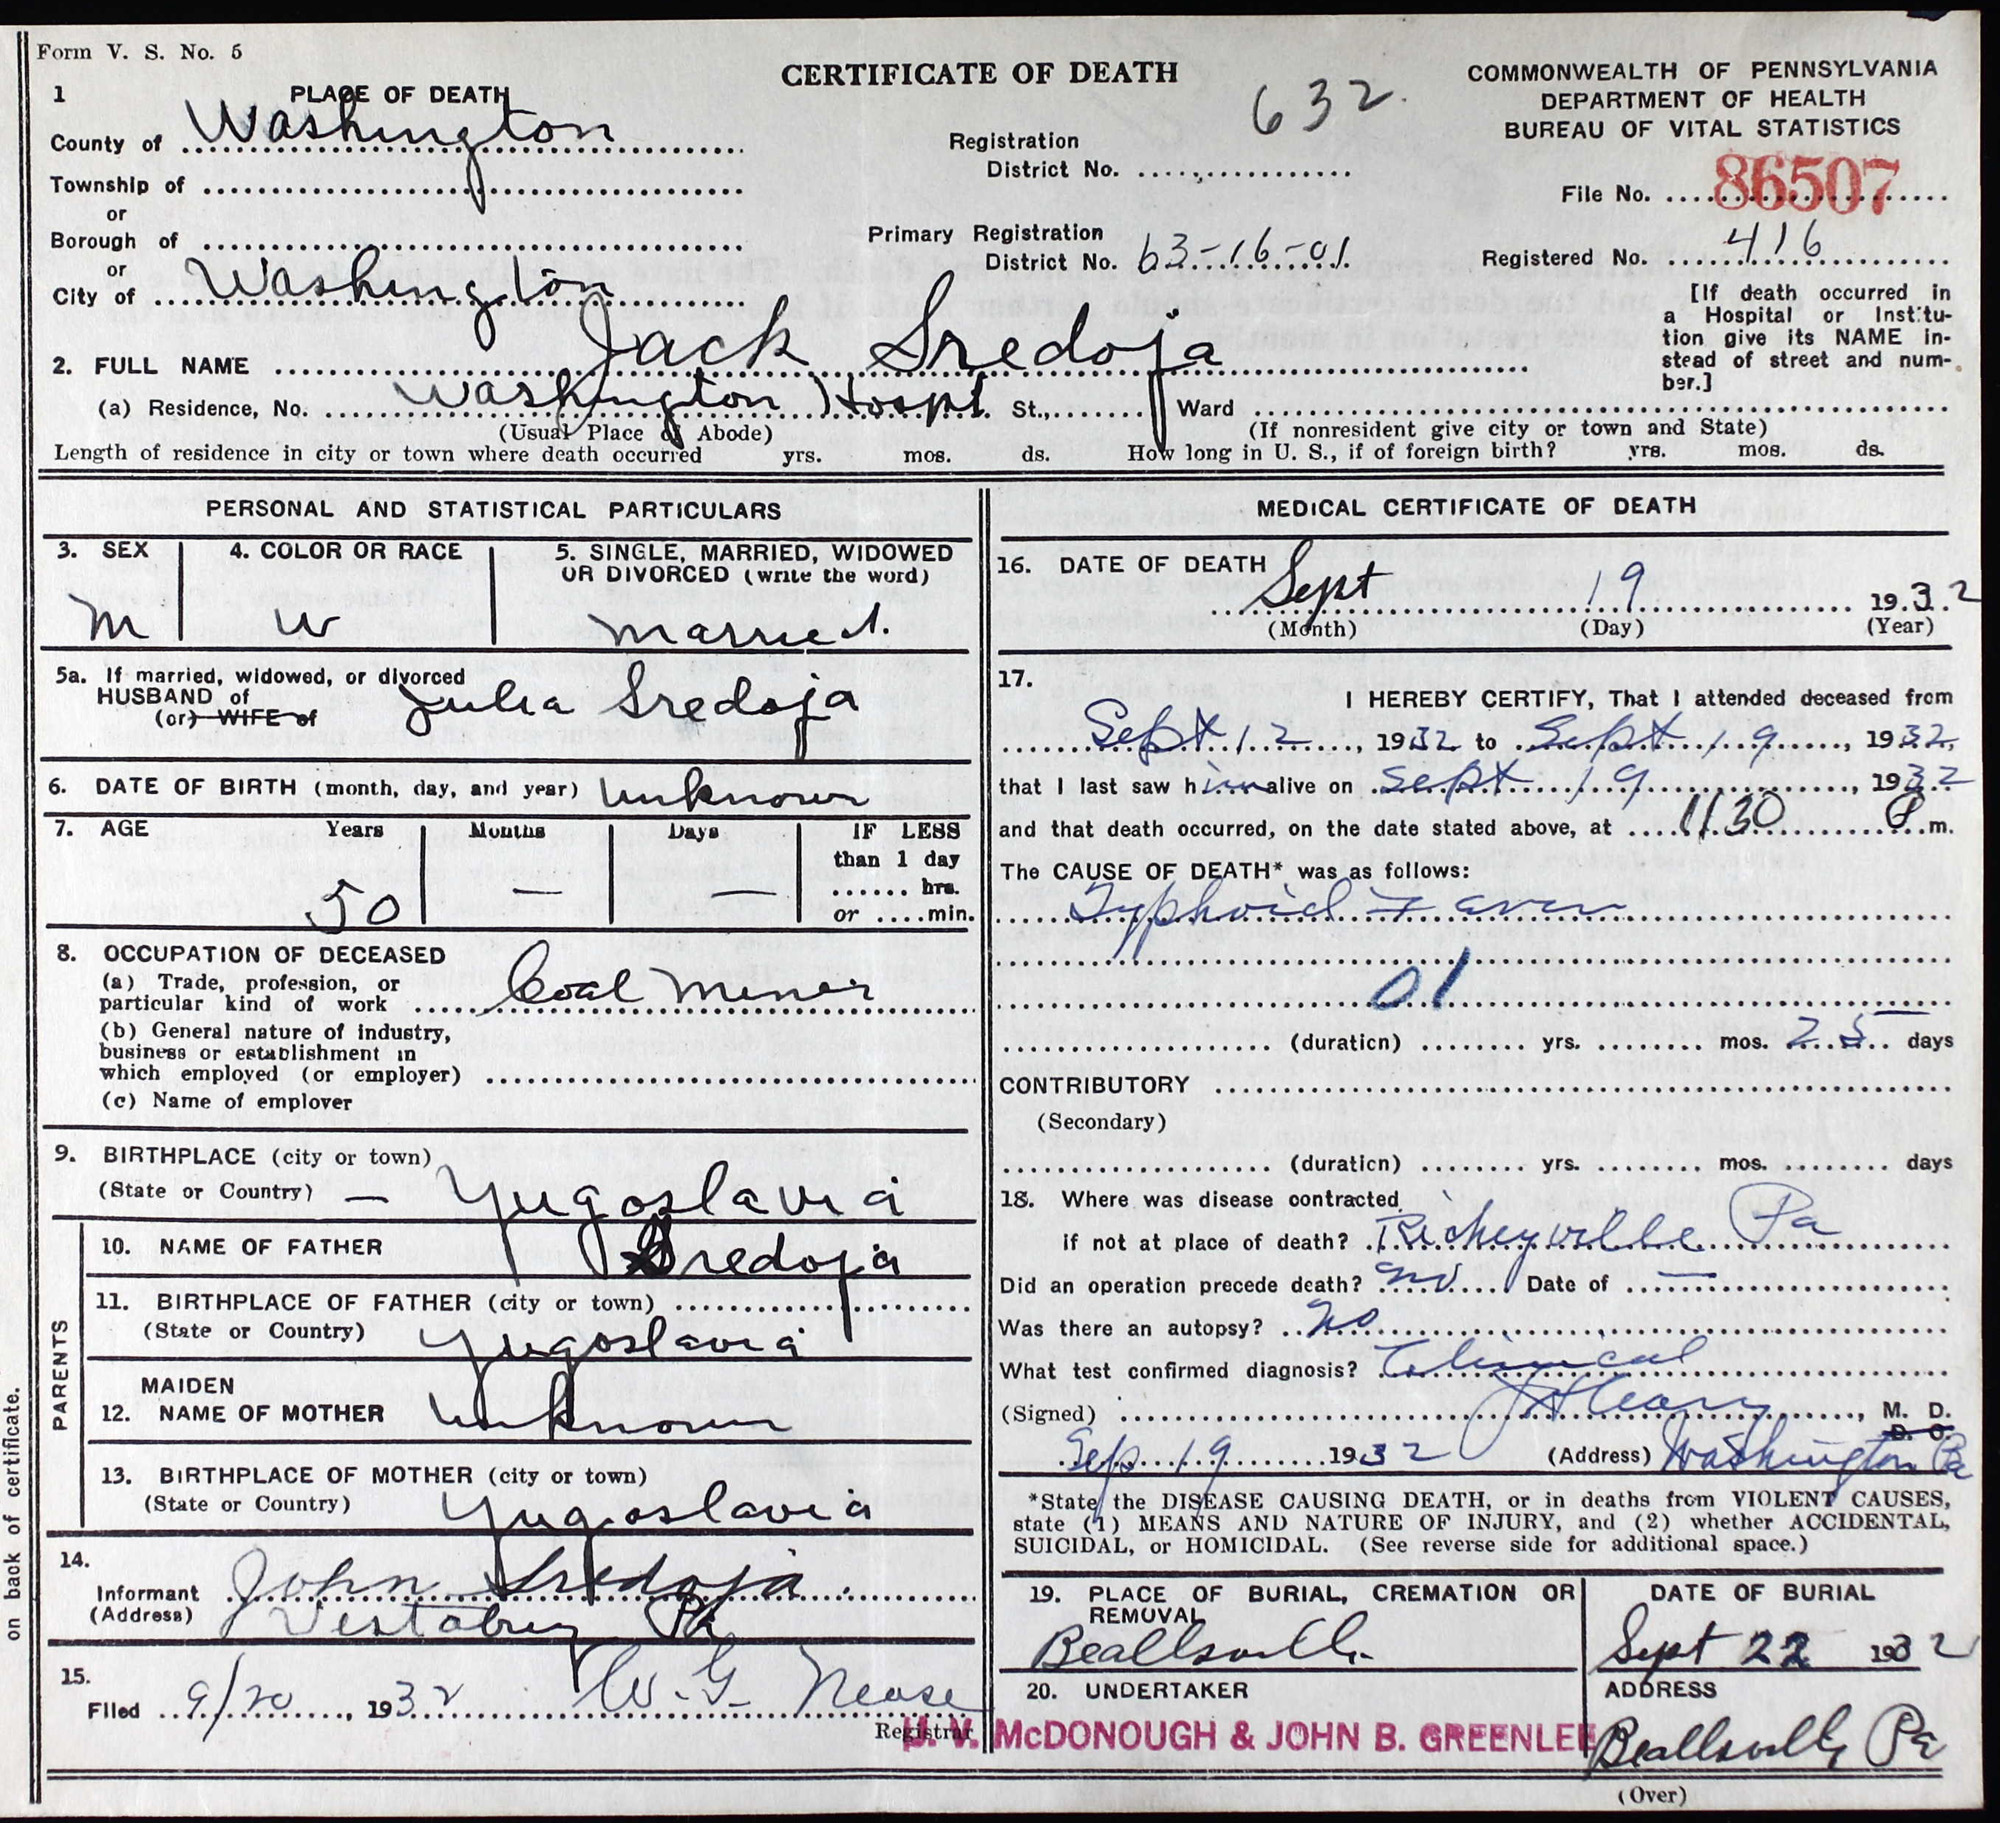 Form V. S. No. 5
CERTIFICATE OF DEATH
632
COMMONWEALTH OF PENNSYLVANIA
DEPARTMENT OF HEALTH
BUREAU OF VITAL STATISTICS
1 PLACE OF DEATH
County of Washington
Township of
or
Borough of
or
City of Washington
Registration
District No.
Primary Registration
District No. 63-16-01
File No. 86507
Registered No. 416
[If death occurred in
a Hospital or Institu-
tion give its NAME in-
stead of street and num-
ber.]
2. FULL NAME Jack Sredoja
(a) Residence, No. Washington Hospt. St., Ward
(Usual Place of Abode) (If nonresident give city or town and State)
Length of residence in city or town where death occurred yrs. mos. ds. How long in U. S., if of foreign birth? yrs. mos. ds.
PERSONAL AND STATISTICAL PARTICULARS
3. SEX 4. COLOR OR RACE 5. SINGLE, MARRIED, WIDOWED
OR DIVORCED (write the word)
M W Married.
5a. If married, widowed, or divorced
HUSBAND of Julia Sredoja
(or) WIFE of
6. DATE OF BIRTH (month, day, and year) Unknown
7. AGE Years Months Days IF LESS
than 1 day
hrs.
50 — — or min.
8. OCCUPATION OF DECEASED
(a) Trade, profession, or
particular kind of work Coal Miner
(b) General nature of industry,
business or establishment in
which employed (or employer)
(c) Name of employer
9. BIRTHPLACE (city or town)
(State or Country) — Yugoslavia
PARENTS
10. NAME OF FATHER Sredoja
11. BIRTHPLACE OF FATHER (city or town)
(State or Country) Yugoslavia
MAIDEN
12. NAME OF MOTHER Unknown
13. BIRTHPLACE OF MOTHER (city or town)
(State or Country) Yugoslavia
14.
Informant John Sredoja
(Address) Vestabury Pa
15.
Filed 9/20, 1932 W. G. Nease
Registrar
on back of certificate.
MEDICAL CERTIFICATE OF DEATH
16. DATE OF DEATH
Sept 19 1932
(Month) (Day) (Year)
17.
I HEREBY CERTIFY, That I attended deceased from
Sept 12, 1932 to Sept 19, 1932,
that I last saw him alive on Sept 19, 1932
and that death occurred, on the date stated above, at 1130 P m.
The CAUSE OF DEATH* was as follows:
Typhoid Faver
01
(duration) yrs. mos. 25 days
CONTRIBUTORY
(Secondary)
(duration) yrs. mos. days
18. Where was disease contracted
if not at place of death? Richeyville Pa
Did an operation precede death? no Date of —
Was there an autopsy? No
What test confirmed diagnosis? Clinical
(Signed) , M. D.
D. O.
Sep 19 1932 (Address) Washington Pa
*State the DISEASE CAUSING DEATH, or in deaths from VIOLENT CAUSES,
state (1) MEANS AND NATURE OF INJURY, and (2) whether ACCIDENTAL,
SUICIDAL, or HOMICIDAL. (See reverse side for additional space.)
19. PLACE OF BURIAL, CREMATION OR
REMOVAL
Beallsville
DATE OF BURIAL
Sept 22 1932
20. UNDERTAKER
U. V. McDONOUGH & JOHN B. GREENLEE
ADDRESS
Beallsville Pa
(Over)